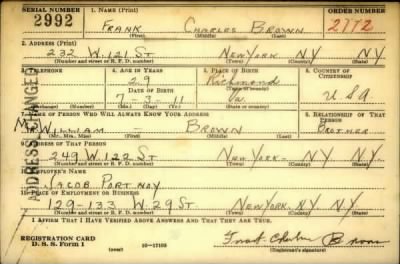 SERIAL NUMBER 1. NAME (Print) ORDER NUMBER
2992 FRANK CHARLES BROWN 2772
(First) (Middle) (Last)
2. ADDRESS (Print)
232 W. 121 ST NEW YORK NY NY
(Number and street or R. F. D. number) (Town) (County) (State)
3. TELEPHONE 4. AGE IN YEARS 5. PLACE OF BIRTH 6. COUNTRY OF CITIZENSHIP
29 Richmond
DATE OF BIRTH
7-3-11 Va. USA
(Exchange) (Number) (Mo.) (Day) (Yr.) (State or country)
7. NAME OF PERSON WHO WILL ALWAYS KNOW YOUR ADDRESS 8. RELATIONSHIP OF THAT PERSON
MR WILLIAM - BROWN BROTHER
(Mr., Mrs., Miss) (First) (Middle) (Last)
9. ADDRESS OF THAT PERSON
249 W. 22 ST NEW YORK - NY NY
(Number and street or R. F. D. number) (Town) (County) (State)
10. EMPLOYER'S NAME
JACOB PORTNOY
11. PLACE OF EMPLOYMENT OR BUSINESS
129-133 W. 29 ST NEW YORK NY NY
(Number and street or R. F. D. number) (Town) (County) (State)
I AFFIRM THAT I HAVE VERIFIED ABOVE ANSWERS AND THAT THEY ARE TRUE.
REGISTRATION CARD
D. S. S. Form 1 (over) 16-17105 (Registrant's signature)
Frank Charles Brown
ADDRESS CHANGE